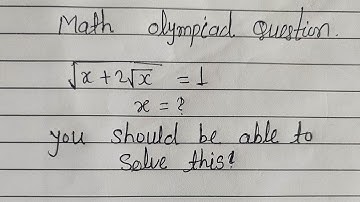 Math olympiad Question.
√(x + 2√x) = 1
x = ?
you should be able to
solve this?